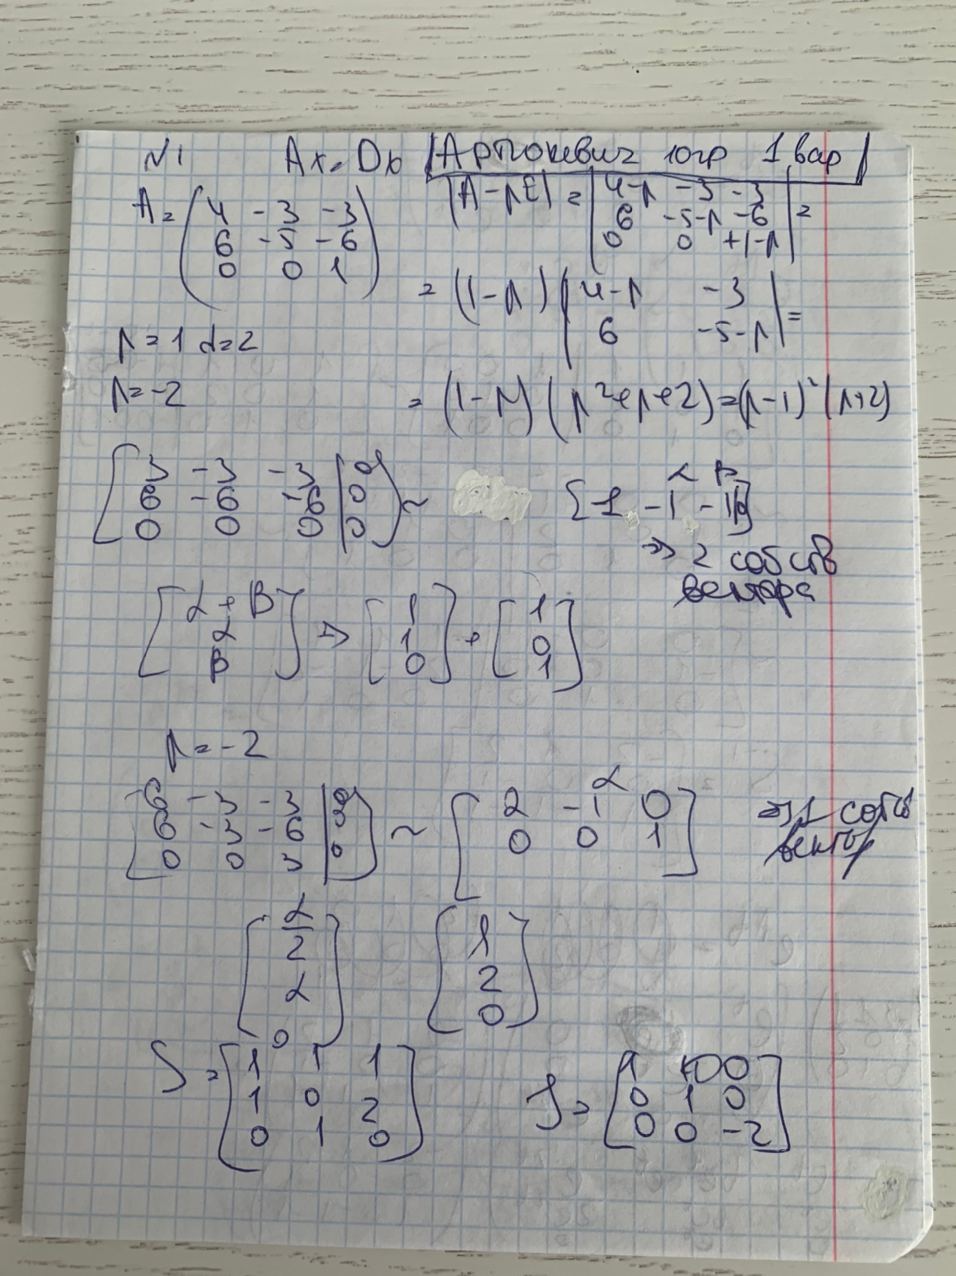 N1 Ax=Db Артюкевич 10гр 1 вар
A = ( 4 -3 -3
6 -5 -6
0 0 1 )
|A-λE| = | 4-λ -3 -3
6 -5-λ -6
0 0 +1-λ | =
= (1-λ) | 4-λ -3
6 -5-λ | =
λ=1 α=2
λ=-2
= (1-λ)(λ²+λ+2)=(λ-1)²(λ+2)
[ 3 -3 -3 | 0
6 -6 -6 | 0
0 0 0 | 0 ] ~
α β
[1 -1 -1]
⇒ 2 собств
вектора
[ α+β
α
β ] ⇒ [ 1
1
0 ] + [ 1
0
1 ]
λ=-2
[ 6 -3 -3 | 0
6 -3 -6 | 0
0 0 3 | 0 ] ~
α
[ 2 -1 0
0 0 1 ]
⇒ 1 собств
вектор
[ α/2
α
0 ]
[ 1
2
0 ]
S = [ 1 1 1
1 0 2
0 1 0 ]
J = [ 1 0 0
0 1 0
0 0 -2 ]